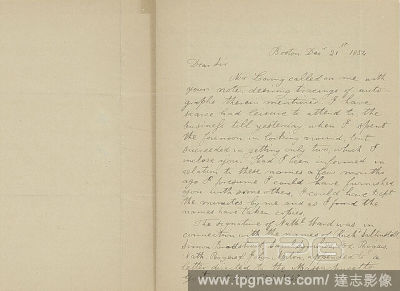 Boston Decr 21st 1852
Dear Sir
Mr Loring called on me with
your note, desiring tracings of auto
graphs therein mentioned. I have
scarce had leisure to attend to the
business till yesterday when I spent
the forenoon in looking around, but
succeeded in getting only two, which I
inclose you. Had I been informed in
relation to these names a few months
ago I presume I could have furnished
you with some others. I could have kept
the minutes by me and as I found the
names have taken copies.
The signature of Nathl Hard was in
connection with the names of Richd Saltonstall
Simon Bradstreet, Saml
Nath to a
letter
www.tpgnews.com
達志影像